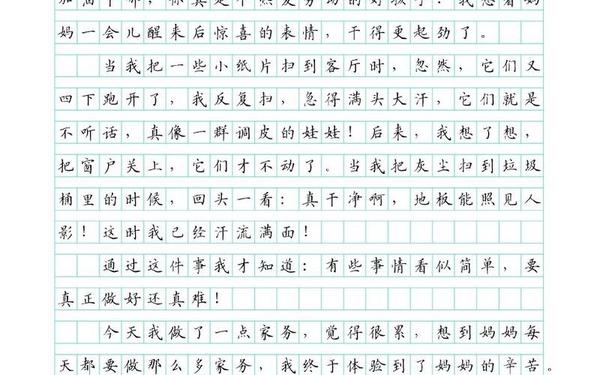 妈一会儿醒来后惊喜的表情，干得更起劲了。
当我把一些小纸片扫到客厅时，忽然，它们又
四下跑开了，我反复扫，急得满头大汗，它们就是
不听话，真像一群调皮的娃娃！后来，我想了想，
把窗户关上，它们才不动了。当我把灰尘扫到垃圾
桶里的时候，回头一看：真干净啊，地板能照见人
影！这时我已经汗流满面！
通过这件事我才知道：有些事情看似简单，要
真正做好还真难！
今天我做了一点家务，觉得很累，想到妈妈每
天都要做那么多家务，我终于体验到了妈妈的辛苦。